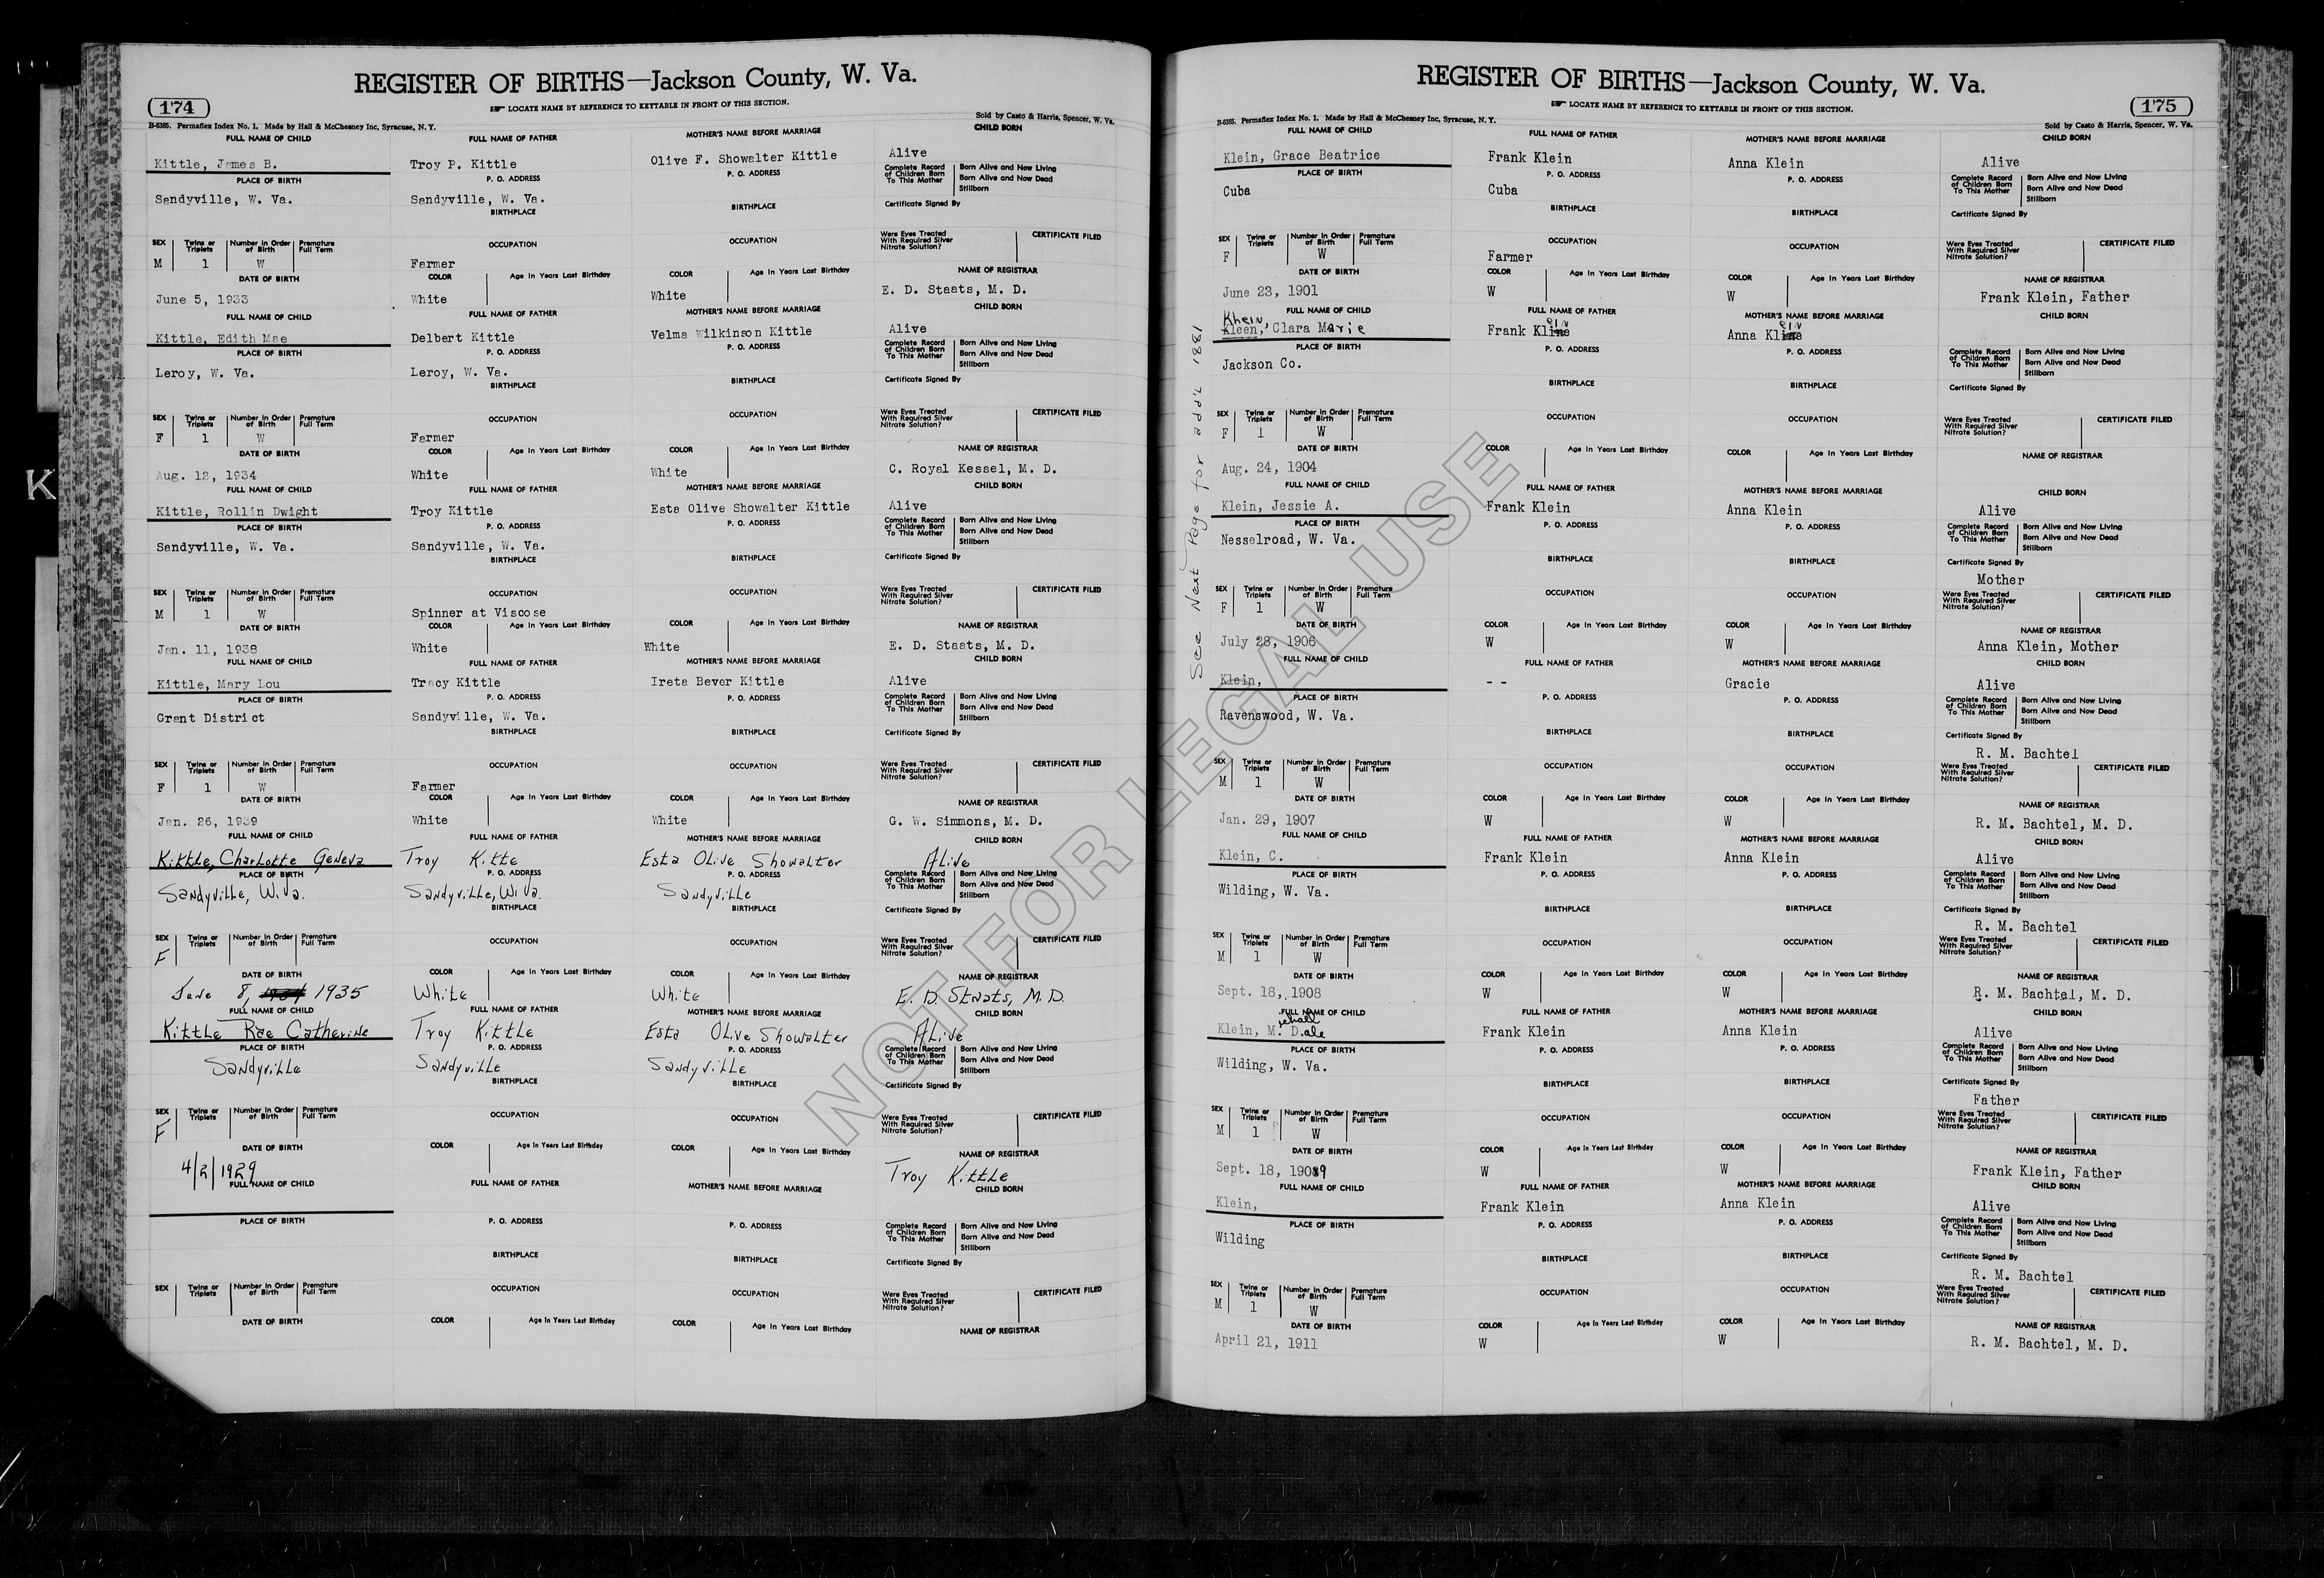 REGISTER OF BIRTHS—Jackson County, W. Va.
174
☞ LOCATE NAME BY REFERENCE TO KEYTABLE IN FRONT OF THIS SECTION.
B-6385. Permaflex Index No. 1. Made by Hall & McChesney Inc, Syracuse, N. Y. Sold by Casto & Harris, Spencer, W. Va.
FULL NAME OF CHILD FULL NAME OF FATHER MOTHER'S NAME BEFORE MARRIAGE CHILD BORN
Kittle, James B. Troy P. Kittle Olive F. Showalter Kittle Alive
PLACE OF BIRTH P. O. ADDRESS P. O. ADDRESS Complete Record of Children Born To This Mother Born Alive and Now Living Born Alive and Now Dead Stillborn
Sandyville, W. Va. Sandyville, W. Va.
BIRTHPLACE BIRTHPLACE Certificate Signed By
SEX Twins or Triplets Number in Order of Birth Premature Full Term OCCUPATION OCCUPATION Were Eyes Treated With Required Silver Nitrate Solution? CERTIFICATE FILED
M 1 W Farmer
DATE OF BIRTH COLOR Age In Years Last Birthday COLOR Age In Years Last Birthday NAME OF REGISTRAR
June 5, 1933 White White E. D. Staats, M. D.
FULL NAME OF CHILD FULL NAME OF FATHER MOTHER'S NAME BEFORE MARRIAGE CHILD BORN
Kittle, Edith Mae Delbert Kittle Velma Wilkinson Kittle Alive
PLACE OF BIRTH P. O. ADDRESS P. O. ADDRESS Complete Record of Children Born To This Mother Born Alive and Now Living Born Alive and Now Dead Stillborn
Leroy, W. Va. Leroy, W. Va.
BIRTHPLACE BIRTHPLACE Certificate Signed By
SEX Twins or Triplets Number in Order of Birth Premature Full Term OCCUPATION OCCUPATION Were Eyes Treated With Required Silver Nitrate Solution? CERTIFICATE FILED
F 1 W Farmer
DATE OF BIRTH COLOR Age In Years Last Birthday COLOR Age In Years Last Birthday NAME OF REGISTRAR
Aug. 12, 1934 White White C. Royal Kessel, M. D.
FULL NAME OF CHILD FULL NAME OF FATHER MOTHER'S NAME BEFORE MARRIAGE CHILD BORN
Kittle, Rollin Dwight Troy Kittle Esta Olive Showalter Kittle Alive
PLACE OF BIRTH P. O. ADDRESS P. O. ADDRESS Complete Record of Children Born To This Mother Born Alive and Now Living Born Alive and Now Dead Stillborn
Sandyville, W. Va. Sandyville, W. Va.
BIRTHPLACE BIRTHPLACE Certificate Signed By
SEX Twins or Triplets Number in Order of Birth Premature Full Term OCCUPATION OCCUPATION Were Eyes Treated With Required Silver Nitrate Solution? CERTIFICATE FILED
M 1 W Spinner at Viscose
DATE OF BIRTH COLOR Age In Years Last Birthday COLOR Age In Years Last Birthday NAME OF REGISTRAR
Jan. 11, 1938 White White E. D. Staats, M. D.
FULL NAME OF CHILD FULL NAME OF FATHER MOTHER'S NAME BEFORE MARRIAGE CHILD BORN
Kittle, Mary Lou Tracy Kittle Ireta Bever Kittle Alive
PLACE OF BIRTH P. O. ADDRESS P. O. ADDRESS Complete Record of Children Born To This Mother Born Alive and Now Living Born Alive and Now Dead Stillborn
Grant District Sandyville, W. Va.
BIRTHPLACE BIRTHPLACE Certificate Signed By
SEX Twins or Triplets Number in Order of Birth Premature Full Term OCCUPATION OCCUPATION Were Eyes Treated With Required Silver Nitrate Solution? CERTIFICATE FILED
F 1 W Farmer
DATE OF BIRTH COLOR Age In Years Last Birthday COLOR Age In Years Last Birthday NAME OF REGISTRAR
Jan. 26, 1939 White White G. W. Simmons, M. D.
FULL NAME OF CHILD FULL NAME OF FATHER MOTHER'S NAME BEFORE MARRIAGE CHILD BORN
Kittle, Charlotte Geneva Troy Kitte Esta Olive Showalter Alive
PLACE OF BIRTH P. O. ADDRESS P. O. ADDRESS Complete Record of Children Born To This Mother Born Alive and Now Living Born Alive and Now Dead Stillborn
Sandyville, W. Va. Sandyville, W. Va. Sandyville
BIRTHPLACE BIRTHPLACE Certificate Signed By
SEX Twins or Triplets Number in Order of Birth Premature Full Term OCCUPATION OCCUPATION Were Eyes Treated With Required Silver Nitrate Solution? CERTIFICATE FILED
F
DATE OF BIRTH COLOR Age In Years Last Birthday COLOR Age In Years Last Birthday NAME OF REGISTRAR
June 8, 1935 White White E. D. Staats, M. D.
FULL NAME OF CHILD FULL NAME OF FATHER MOTHER'S NAME BEFORE MARRIAGE CHILD BORN
Kittle Rae Catherine Troy Kittle Esta Olive Showalter Alive
PLACE OF BIRTH P. O. ADDRESS P. O. ADDRESS Complete Record of Children Born To This Mother Born Alive and Now Living Born Alive and Now Dead Stillborn
Sandyville Sandyville Sandyville
BIRTHPLACE BIRTHPLACE Certificate Signed By
SEX Twins or Triplets Number in Order of Birth Premature Full Term OCCUPATION OCCUPATION Were Eyes Treated With Required Silver Nitrate Solution? CERTIFICATE FILED
F
DATE OF BIRTH COLOR Age In Years Last Birthday COLOR Age In Years Last Birthday NAME OF REGISTRAR
4/2/1929 Troy Kittle
FULL NAME OF CHILD FULL NAME OF FATHER MOTHER'S NAME BEFORE MARRIAGE CHILD BORN
PLACE OF BIRTH P. O. ADDRESS P. O. ADDRESS Complete Record of Children Born To This Mother Born Alive and Now Living Born Alive and Now Dead Stillborn
BIRTHPLACE BIRTHPLACE Certificate Signed By
SEX Twins or Triplets Number in Order of Birth Premature Full Term OCCUPATION OCCUPATION Were Eyes Treated With Required Silver Nitrate Solution? CERTIFICATE FILED
DATE OF BIRTH COLOR Age In Years Last Birthday COLOR Age In Years Last Birthday NAME OF REGISTRAR
K
REGISTER OF BIRTHS—Jackson County, W. Va.
175
☞ LOCATE NAME BY REFERENCE TO KEYTABLE IN FRONT OF THIS SECTION.
B-6385. Permaflex Index No. 1. Made by Hall & McChesney Inc, Syracuse, N. Y. Sold by Casto & Harris, Spencer, W. Va.
FULL NAME OF CHILD FULL NAME OF FATHER MOTHER'S NAME BEFORE MARRIAGE CHILD BORN
Klein, Grace Beatrice Frank Klein Anna Klein Alive
PLACE OF BIRTH P. O. ADDRESS P. O. ADDRESS Complete Record of Children Born To This Mother Born Alive and Now Living Born Alive and Now Dead Stillborn
Cuba Cuba
BIRTHPLACE BIRTHPLACE Certificate Signed By
SEX Twins or Triplets Number in Order of Birth Premature Full Term OCCUPATION OCCUPATION Were Eyes Treated With Required Silver Nitrate Solution? CERTIFICATE FILED
F W Farmer
DATE OF BIRTH COLOR Age In Years Last Birthday COLOR Age In Years Last Birthday NAME OF REGISTRAR
June 23, 1901 W W Frank Klein, Father
FULL NAME OF CHILD FULL NAME OF FATHER MOTHER'S NAME BEFORE MARRIAGE CHILD BORN
Khein ein ein
Kleen, Clara Marie Frank Kline Anna Kline
PLACE OF BIRTH P. O. ADDRESS P. O. ADDRESS Complete Record of Children Born To This Mother Born Alive and Now Living Born Alive and Now Dead Stillborn
Jackson Co.
BIRTHPLACE BIRTHPLACE Certificate Signed By
SEX Twins or Triplets Number in Order of Birth Premature Full Term OCCUPATION OCCUPATION Were Eyes Treated With Required Silver Nitrate Solution? CERTIFICATE FILED
F 1 W
DATE OF BIRTH COLOR Age In Years Last Birthday COLOR Age In Years Last Birthday NAME OF REGISTRAR
Aug. 24, 1904
FULL NAME OF CHILD FULL NAME OF FATHER MOTHER'S NAME BEFORE MARRIAGE CHILD BORN
Klein, Jessie A. Frank Klein Anna Klein Alive
PLACE OF BIRTH P. O. ADDRESS P. O. ADDRESS Complete Record of Children Born To This Mother Born Alive and Now Living Born Alive and Now Dead Stillborn
Nesselroad, W. Va.
BIRTHPLACE BIRTHPLACE Certificate Signed By
Mother
SEX Twins or Triplets Number in Order of Birth Premature Full Term OCCUPATION OCCUPATION Were Eyes Treated With Required Silver Nitrate Solution? CERTIFICATE FILED
F 1 W
DATE OF BIRTH COLOR Age In Years Last Birthday COLOR Age In Years Last Birthday NAME OF REGISTRAR
July 28, 1906 W W Anna Klein, Mother
FULL NAME OF CHILD FULL NAME OF FATHER MOTHER'S NAME BEFORE MARRIAGE CHILD BORN
Klein, - - Gracie Alive
PLACE OF BIRTH P. O. ADDRESS P. O. ADDRESS Complete Record of Children Born To This Mother Born Alive and Now Living Born Alive and Now Dead Stillborn
Ravenswood, W. Va.
BIRTHPLACE BIRTHPLACE Certificate Signed By
R. M. Bachtel
SEX Twins or Triplets Number in Order of Birth Premature Full Term OCCUPATION OCCUPATION Were Eyes Treated With Required Silver Nitrate Solution? CERTIFICATE FILED
M 1 W
DATE OF BIRTH COLOR Age In Years Last Birthday COLOR Age In Years Last Birthday NAME OF REGISTRAR
Jan. 29, 1907 W W R. M. Bachtel, M. D.
FULL NAME OF CHILD FULL NAME OF FATHER MOTHER'S NAME BEFORE MARRIAGE CHILD BORN
Klein, C. Frank Klein Anna Klein Alive
PLACE OF BIRTH P. O. ADDRESS P. O. ADDRESS Complete Record of Children Born To This Mother Born Alive and Now Living Born Alive and Now Dead Stillborn
Wilding, W. Va.
BIRTHPLACE BIRTHPLACE Certificate Signed By
R. M. Bachtel
SEX Twins or Triplets Number in Order of Birth Premature Full Term OCCUPATION OCCUPATION Were Eyes Treated With Required Silver Nitrate Solution? CERTIFICATE FILED
M 1 W
DATE OF BIRTH COLOR Age In Years Last Birthday COLOR Age In Years Last Birthday NAME OF REGISTRAR
Sept. 18, 1908 W W R. M. Bachtel, M. D.
FULL NAME OF CHILD FULL NAME OF FATHER MOTHER'S NAME BEFORE MARRIAGE CHILD BORN
Klein, M. Dale Frank Klein Anna Klein Alive
PLACE OF BIRTH P. O. ADDRESS P. O. ADDRESS Complete Record of Children Born To This Mother Born Alive and Now Living Born Alive and Now Dead Stillborn
Wilding, W. Va.
BIRTHPLACE BIRTHPLACE Certificate Signed By
Father
SEX Twins or Triplets Number in Order of Birth Premature Full Term OCCUPATION OCCUPATION Were Eyes Treated With Required Silver Nitrate Solution? CERTIFICATE FILED
M 1 W
DATE OF BIRTH COLOR Age In Years Last Birthday COLOR Age In Years Last Birthday NAME OF REGISTRAR
Sept. 18, 1909 W W Frank Klein, Father
FULL NAME OF CHILD FULL NAME OF FATHER MOTHER'S NAME BEFORE MARRIAGE CHILD BORN
Klein, Frank Klein Anna Klein Alive
PLACE OF BIRTH P. O. ADDRESS P. O. ADDRESS Complete Record of Children Born To This Mother Born Alive and Now Living Born Alive and Now Dead Stillborn
Wilding
BIRTHPLACE BIRTHPLACE Certificate Signed By
R. M. Bachtel
SEX Twins or Triplets Number in Order of Birth Premature Full Term OCCUPATION OCCUPATION Were Eyes Treated With Required Silver Nitrate Solution? CERTIFICATE FILED
M 1 W
DATE OF BIRTH COLOR Age In Years Last Birthday COLOR Age In Years Last Birthday NAME OF REGISTRAR
April 21, 1911 W W R. M. Bachtel, M. D.
See Next Page for add'l 1881
NOT FOR LEGAL USE